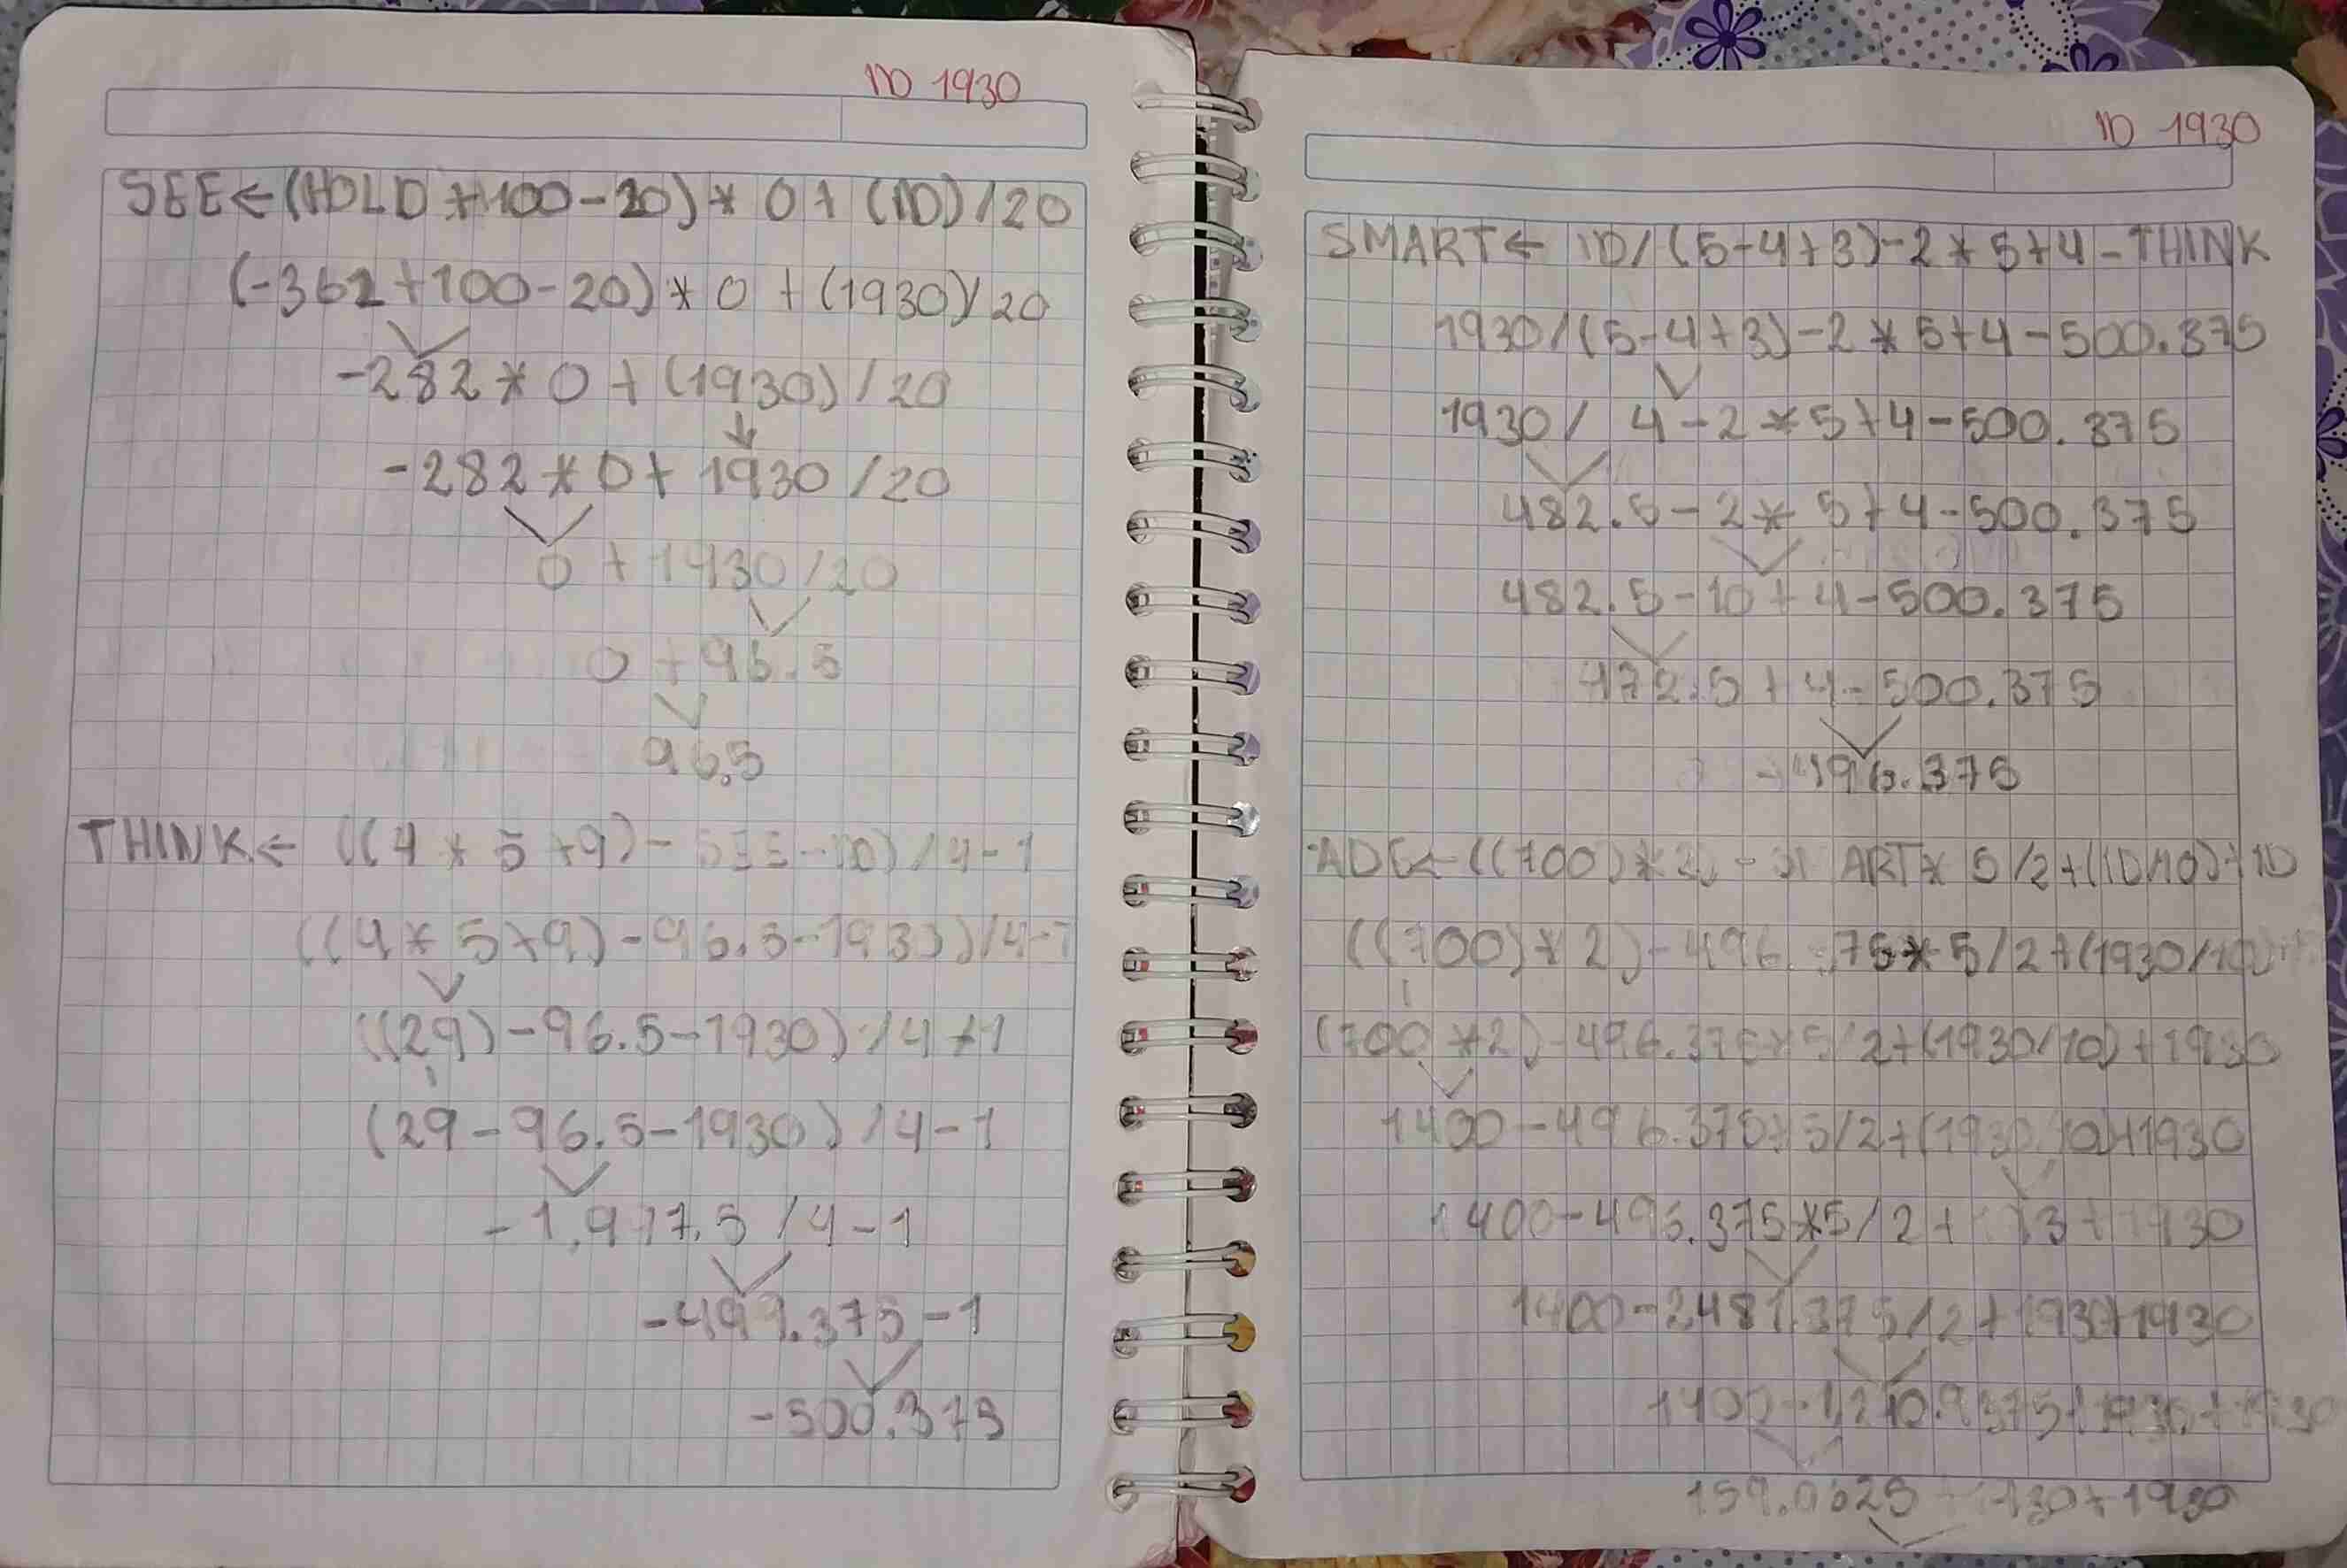 ID 1930
SEE ← (HOLD + 100 - 20) * 0 + (ID) / 20
(-362 + 100 - 20) * 0 + (1930) / 20
-282 * 0 + (1930) / 20
-282 * 0 + 1930 / 20
0 + 1930 / 20
0 + 96.5
96.5
THINK ← ((4 * 5 + 9) - SEE - ID) / 4 - 1
((4 * 5 + 9) - 96.5 - 1930) / 4 - 1
((29) - 96.5 - 1930) / 4 - 1
(29 - 96.5 - 1930) / 4 - 1
-1,997.5 / 4 - 1
-499.375 - 1
-500.375
ID 1930
SMART ← ID / (5 - 4 + 3) - 2 * 5 + 4 - THINK
1930 / (5 - 4 + 3) - 2 * 5 + 4 - 500.375
1930 / 4 - 2 * 5 + 4 - 500.375
482.5 - 2 * 5 + 4 - 500.375
482.5 - 10 + 4 - 500.375
472.5 + 4 - 500.375
-496.375
((700) * 2) - ART * 5 / 2 + (ID/10) + ID
((700) * 2) - 496. 75 * 5 / 2 + (1930/10)
(700 * 2) - 496.375 * 5 / 2 + (1930/10) + 1930
1400 - 496.375 * 5 / 2 + (1930/10) + 1930
1400 - 496.375 * 5 / 2 + 3 + 1930
1400 - 2481.375 / 2 + 193 + 1930
1400 - 1,240.9375 + + 1930
159.0625 1930 + 1930